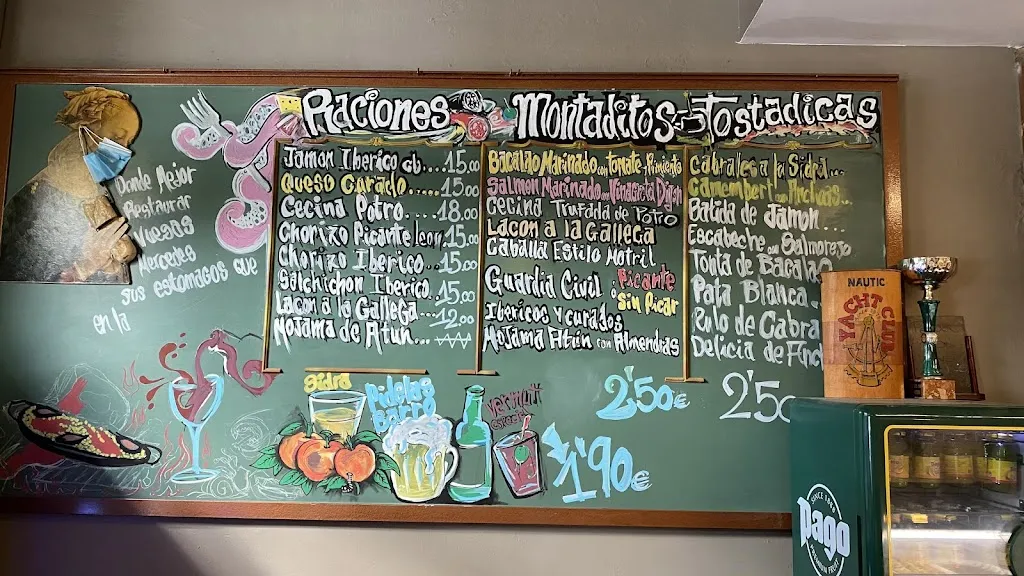 Donde Mejor
Restaurar
Vuesas
Mercedes
sus estomagos que
en la
Raciones
Jamon Iberico cb... 15.00
Queso Curado..... 15.00
Cecina Potro.... 18.00
Chorizo Picante leon. 15.00
Chorizo Iberico... 15.00
Salchichon Iberico. 15.00
Lacon a la Gallega... 12.00
Mojama de Atún...
Montaditos
Bacalao Marinado con tomate y Pimiento
Salmon Marinado con Vinagreta Dijon
Cecina Trufada de Potro
Lacon a la Gallega
Caballa Estilo Motril
Guardia Civil o Picante
Sin Picar
Ibericos y curados
Mojama Atún con Almendras
2'50€
Tostadicas
Cabrales a la Sidra...
Camembert con Anchoas...
Batida de Jamon...
Escabeche con Salmorejo
Tonta de Bacalao
Pata Blanca..
Rulo de Cabra
Delicia de
2'50
Sidra
Vermuit
1'90€
NAUTIC
YACHT
CLUB
SINCE 1888
Pago
PREMIUM FRUIT